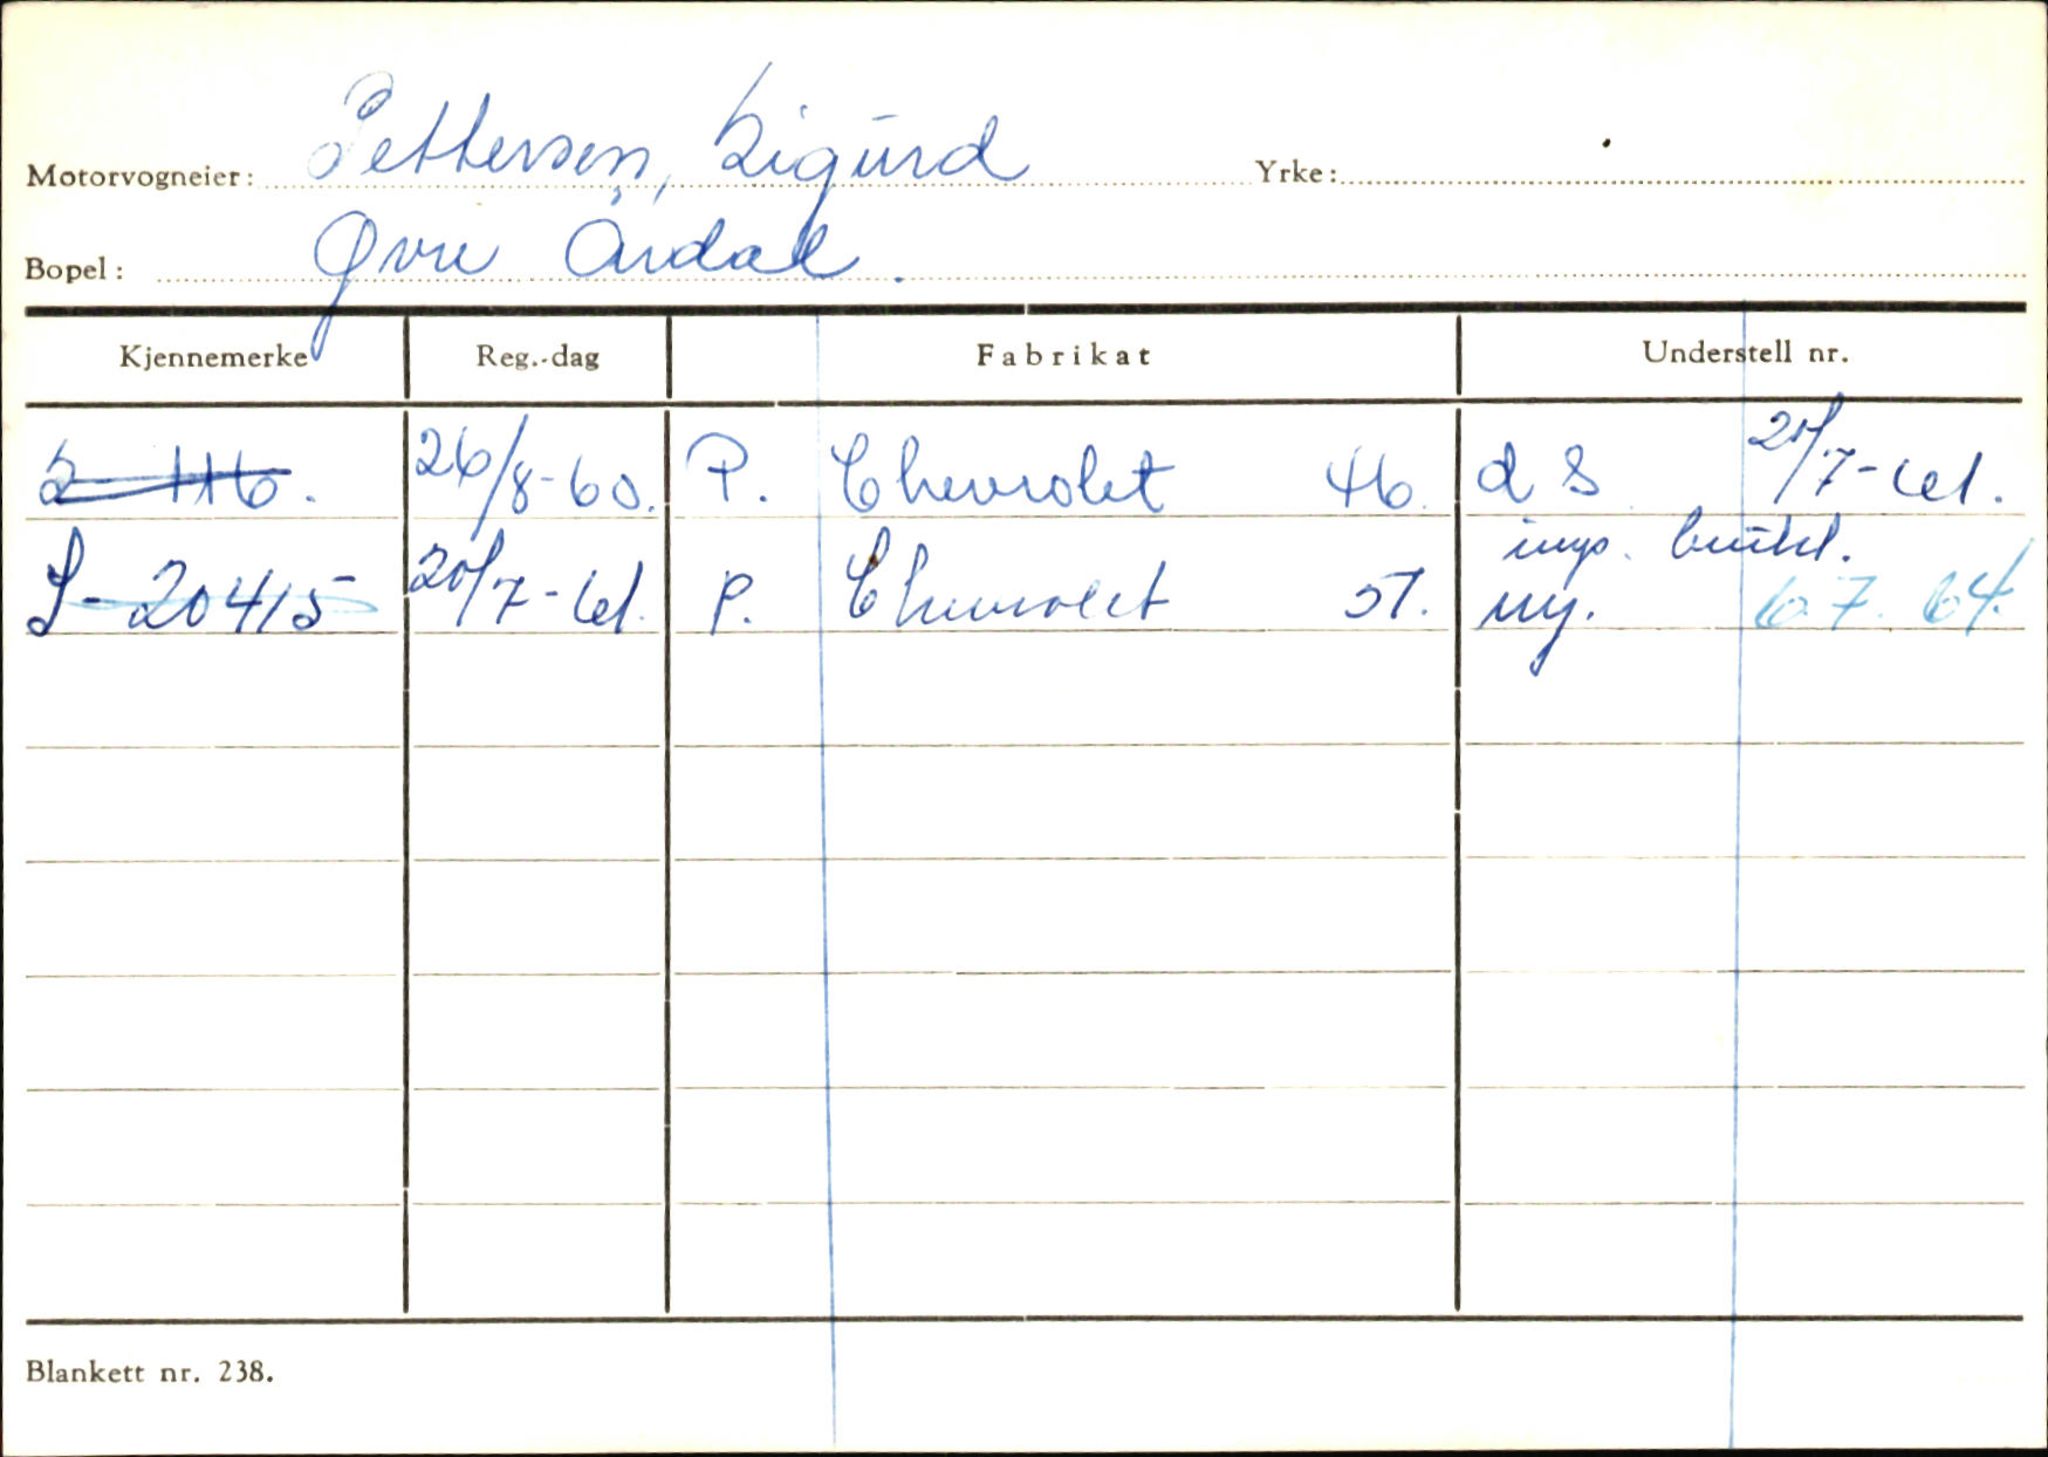 Motorvogneier: Pettersen, Sigurd Yrke:
Bopel: Øvre Årdal.
Kjennemerke Reg.-dag Fabrikat Understell nr.
116. 26/8-60. P. Chevrolet 46. d S 20/7-61.
S-20415 20/7-61. P. Chevrolet 51. ny. 6.7.64.
Blankett nr. 238.